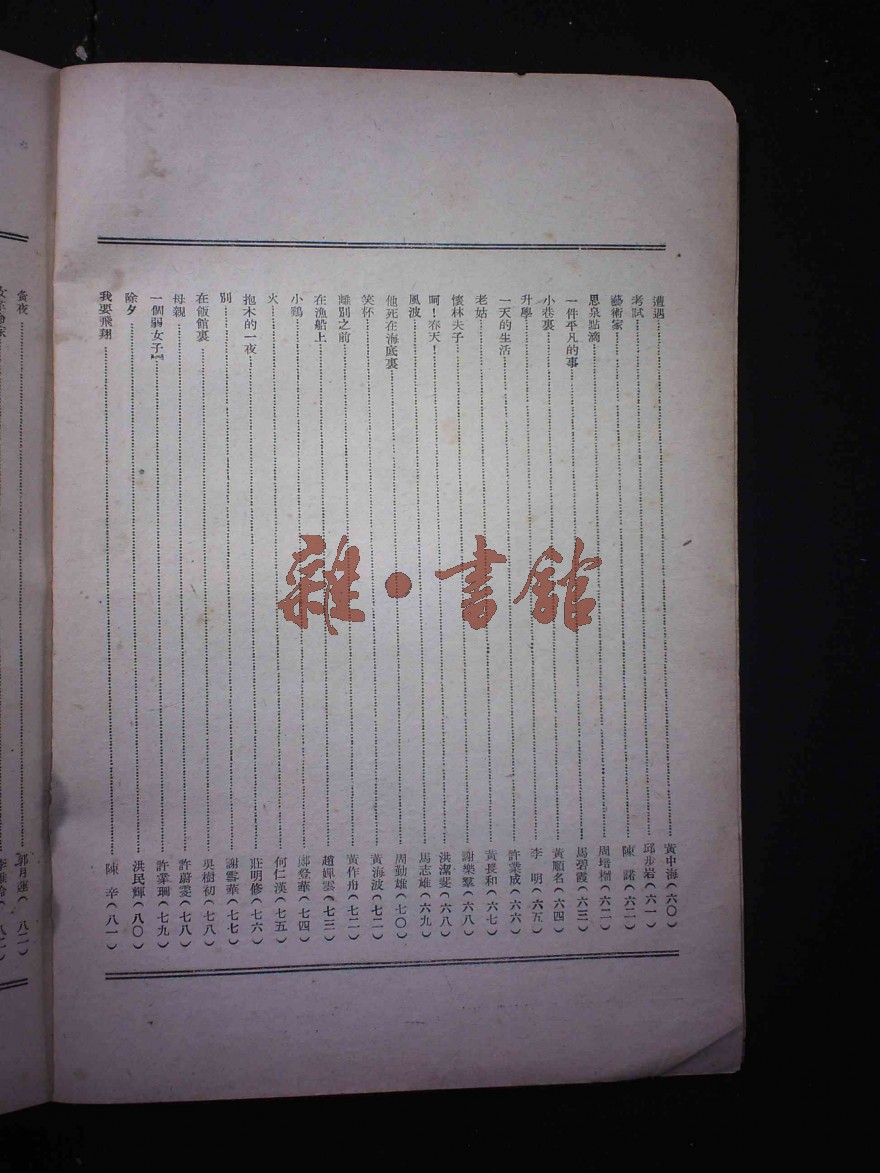 遭遇……黃中海(六〇)
考試……邱步岩(六一)
藝術家……陳 諾(六二)
思泉點滴……周培(六二)
一件平凡的事……馬碧霞(六三)
小巷裏……黃順名(六四)
升學……李 明(六五)
一天的生活……許業成(六六)
老姑……黃長和(六七)
懷林夫子……謝樂羣(六八)
呵!春天!……洪潔雯(六八)
風波……馬志雄(六九)
他死在海底裏……周勤雄(七〇)
笑杯……黃海波(七二)
離別之前……黃作舟(七二)
在漁船上……趙嬋雲(七三)
小鷄……鄭燈華(七四)
火……何仁漢(七五)
抱木的一夜……莊明修(七六)
別……謝雲華(七七)
在飯館裏……吳樹初(七八)
母親……許蔚雯(七八)
一個弱女子】……許業珊(七九)
除夕……洪民輝(八〇)
我要飛翔……陳 辛(八一)
黃夜……郭月蓮(八二)
雜·書館